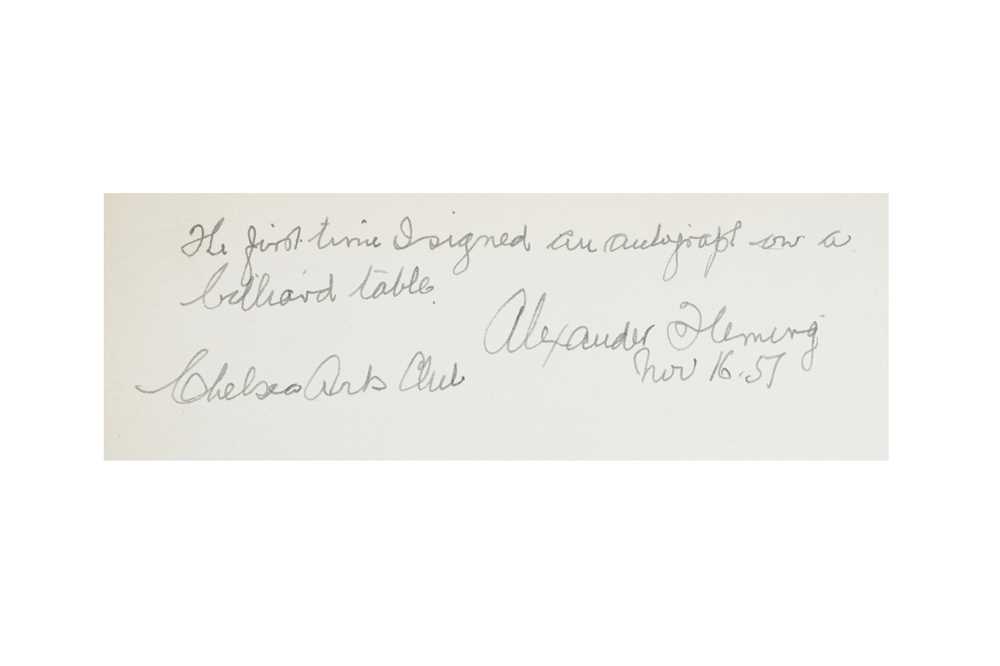 The first time I signed an autograph on a
billiard table.
Alexander Fleming
Chelsea Arts Club
Nov 16.51